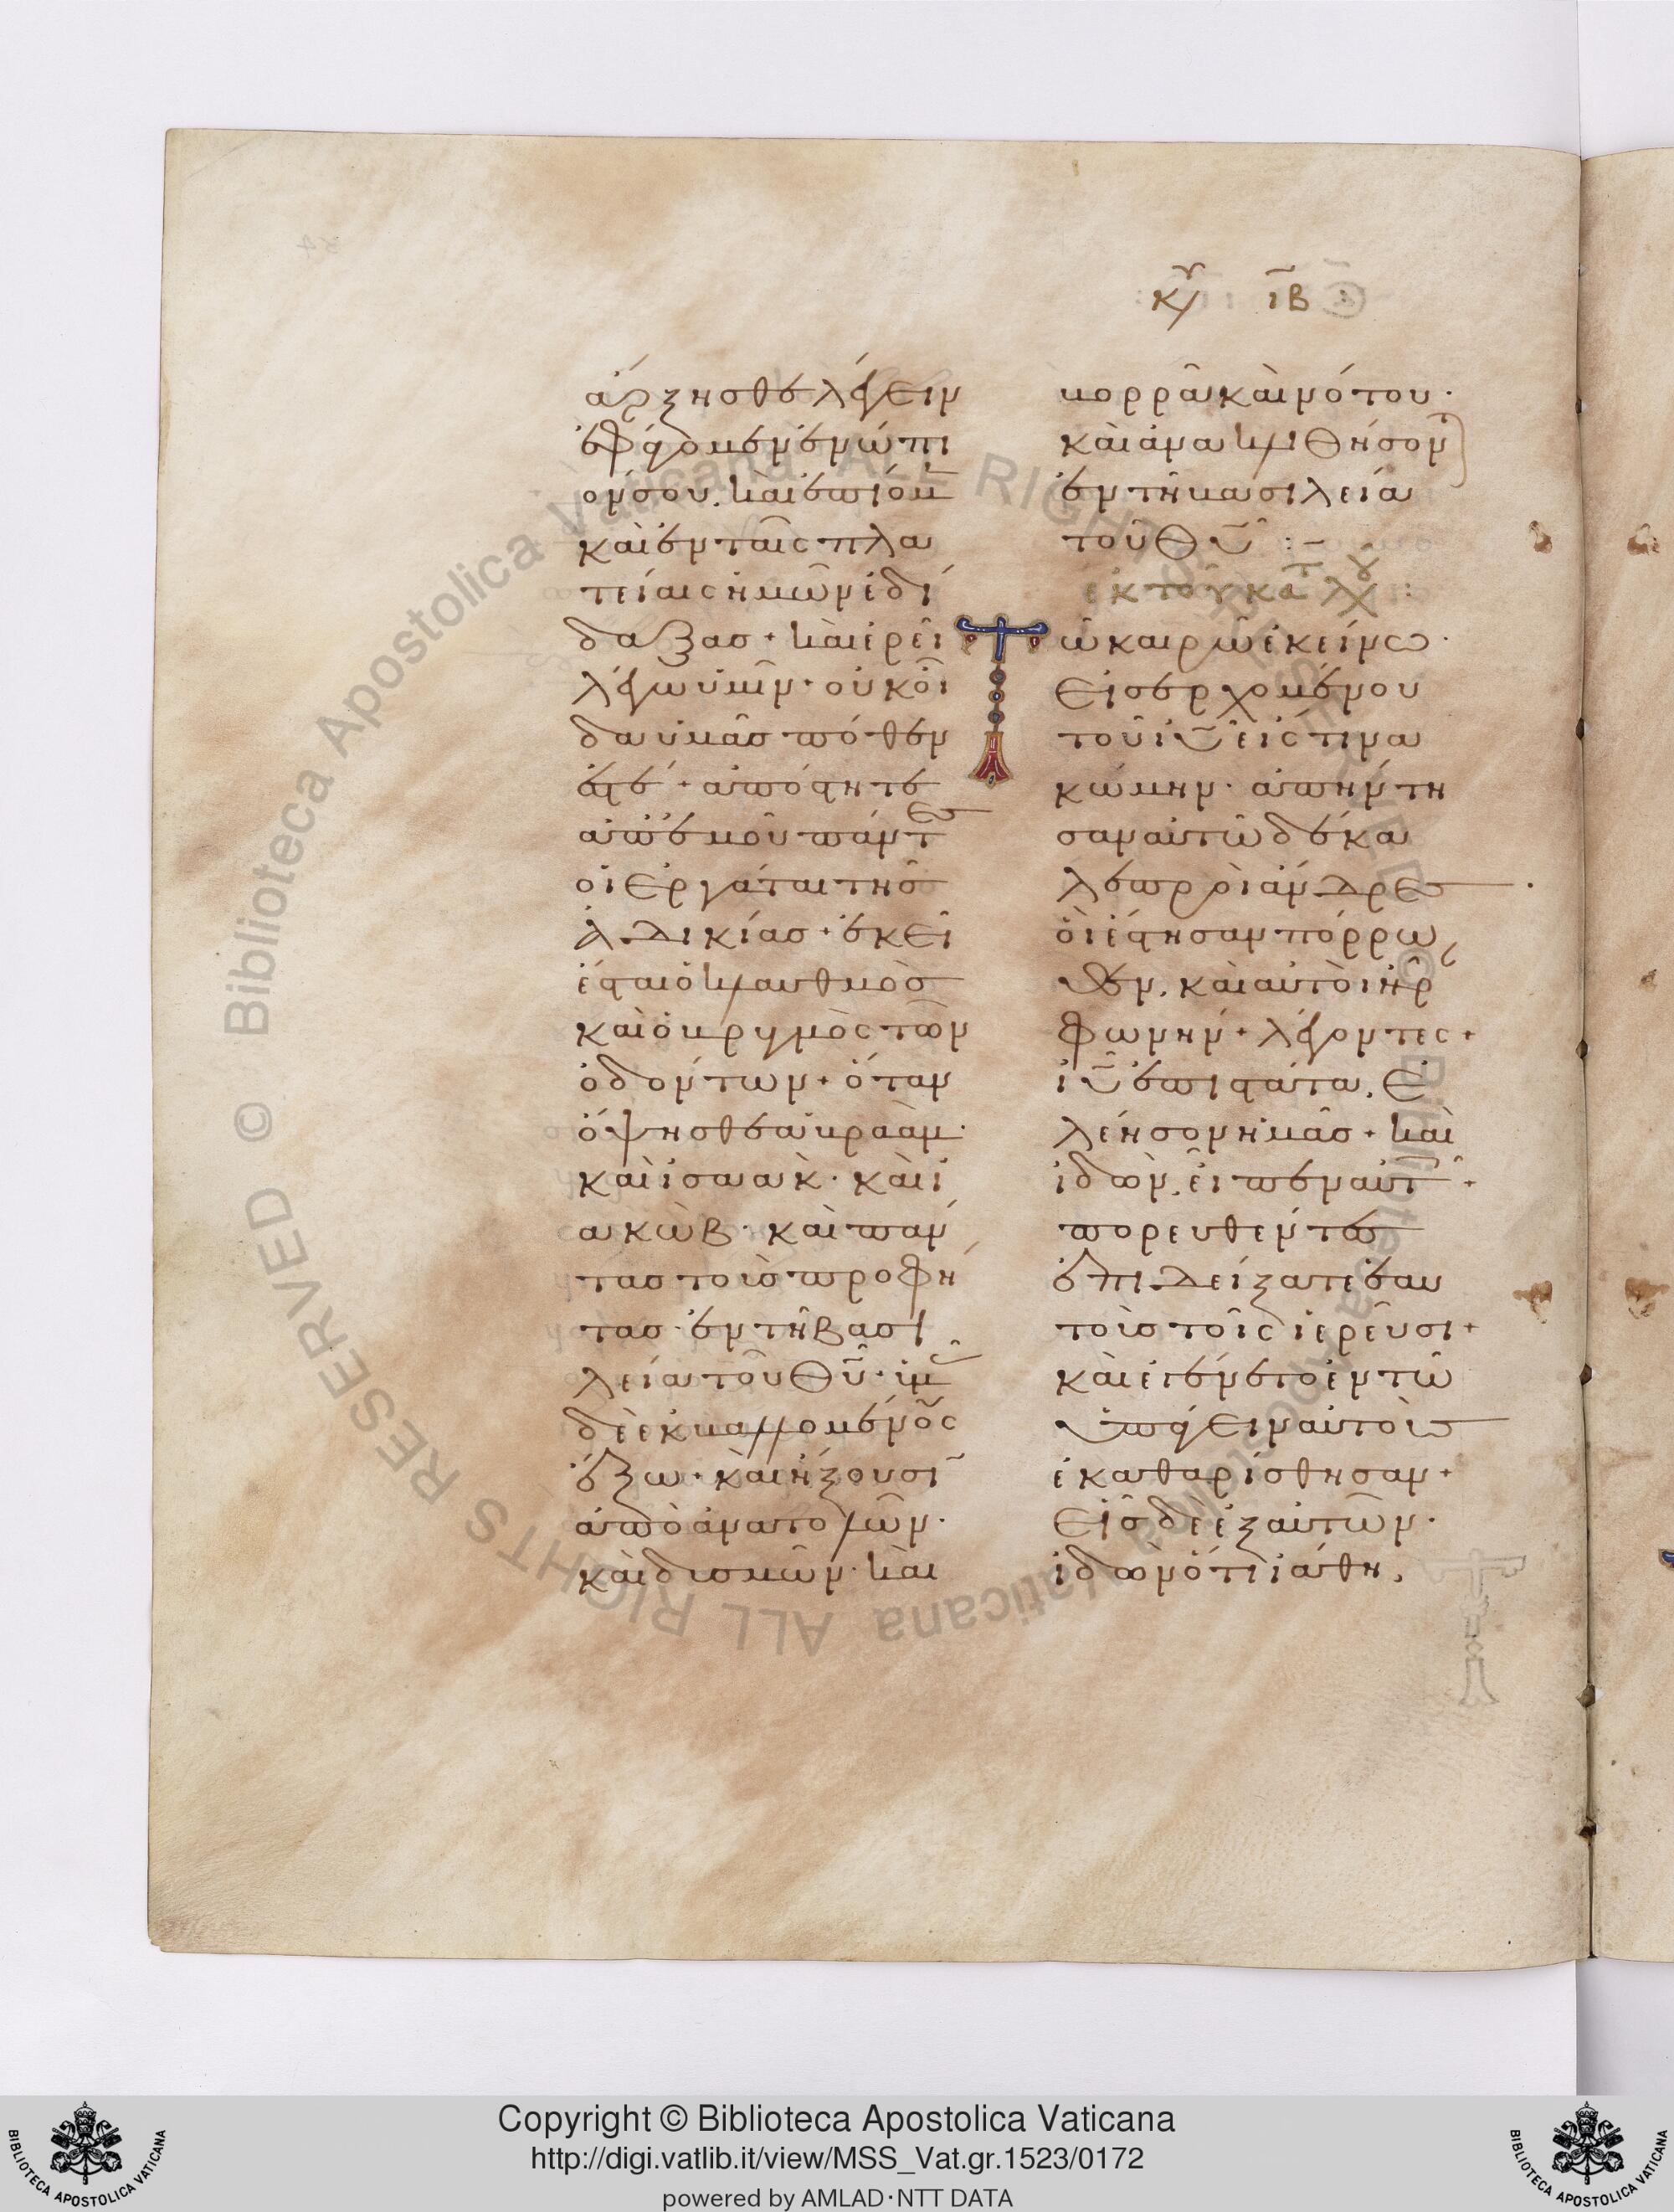 κυ ιβ
ἄρξησθε λέγειν
ἐφάγομεν ἐνώπι
όν σου. καὶ ἐπίομ
καὶ ἐν ταῖς πλα
τείαις ἡμῶν ἐδί
δαξας + καὶ ἐρεῖ
λέγω ὑμῖν · οὐκ οἶ
δα ὑμᾶς πόθεν
ἐστέ + ἀπόστητε
ἀπ' ἐμοῦ πάντες
οἱ ἐργάται τῆς
ἀδικίας + ἐκεῖ
ἔσται ὁ κλαυθμὸς
καὶ ὁ βρυγμὸς τῶν
ὀδόντων + ὅταν
ὄψησθε ἀβραὰμ ·
καὶ ἰσαὰκ · καὶ ἰ
ακὼβ · καὶ πάν
τας τοὺς προφή
τας · ἐν τῆ βασι
λεία τοῦ Θῦ · ὑμ
δὲ ἐκβαλλομένους
ἔξω + καὶ ἥξουσι
ἀπὸ ἀνατολῶν ·
καὶ δυσμῶν · καὶ
βορρᾶ καὶ νότου ·
καὶ ἀνακλιθήσον
ἐν τῆ βασιλεία
τοῦ Θῦ : –
ἐκ τοῦ κατ λου :
Τῶ καιρῶ ἐκείνω ·
Εἰσερχομένου
τοῦ ιῦ εἴς τινα
κώμην · ἀπήντη
σαν αὐτῶ δέκα
λεπροὶ ἄνδρες ·
οἳ ἔστησαν πόρρω
θεν, καὶ αὐτοὶ ἦρ
φωνήν + λέγοντες +
ἰῦ ἐπιστάτα, ἐ
λέησον ἡμᾶς + καὶ
ἰδὼν, εἶπεν αὐτ +
πορευθέντες
ἐπιδείξατε ἑαυ
τοὺς τοῖς ἱερεῦσι +
καὶ ἐγένετο ἐν τῶ
ὑπάγειν αὐτοὺς
ἐκαθαρίσθησαν +
Εἷς δὲ ἐξ αὐτῶν ·
ἰδὼν ὅτι ἰάθη,
© Biblioteca Apostolica Vaticana ALL RIGHTS RESERVED © Biblioteca Apostolica Vaticana ALL RIGHTS RESERVED
Copyright © Biblioteca Apostolica Vaticana
http://digi.vatlib.it/view/MSS_Vat.gr.1523/0172
powered by AMLAD·NTT DATA
BIBLIOTECA APOSTOLICA VATICANA
BIBLIOTECA APOSTOLICA VATICANA